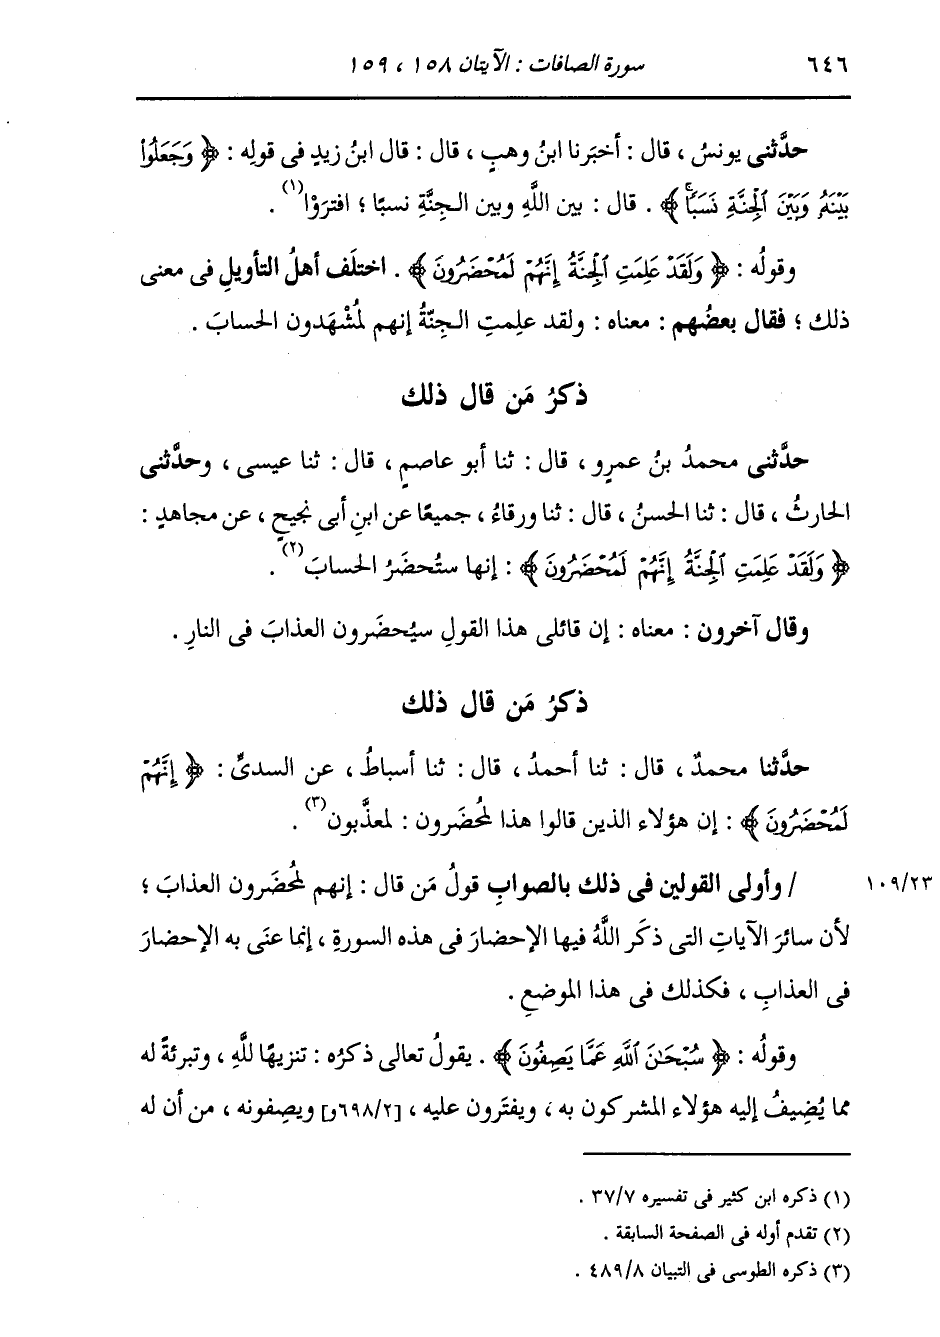 ٦٤٦ سورة الصافات : الآيتان ١٥٨ ، ١٥٩
حدَّثنى يونسُ ، قال : أخبَرنا ابنُ وهبٍ ، قال : قال ابنُ زيدٍ فى قولِه : ﴿ وَجَعَلُوا۟
بَيْنَهُۥ وَبَيْنَ ٱلْجِنَّةِ نَسَبًۭا ﴾ . قال : بين اللَّهِ وبين الـجِنَّةِ نسبًا ؛ افترَوْا(١) .
وقولُه : ﴿ وَلَقَدْ عَلِمَتِ ٱلْجِنَّةُ إِنَّهُمْ لَمُحْضَرُونَ ﴾ . اختلَف أهلُ التأويلِ فى معنى
ذلك ؛ فقال بعضُهم : معناه : ولقد علِمتِ الـجِنّةُ إنهم لَمُشْهَدون الحسابَ .
ذكرُ مَن قال ذلك
حدَّثنى محمدُ بنُ عمرٍو ، قال : ثنا أبو عاصمٍ ، قال : ثنا عيسى ، وحدَّثنى
الحارثُ ، قال : ثنا الحسنُ ، قال : ثنا ورقاءُ ، جميعًا عن ابنِ أبى نجيحٍ ، عن مجاهدٍ :
﴿ وَلَقَدْ عَلِمَتِ ٱلْجِنَّةُ إِنَّهُمْ لَمُحْضَرُونَ ﴾ : إنها ستُحضَرُ الحسابَ(٢) .
وقال آخرون : معناه : إن قائلى هذا القولِ سيُحضَرون العذابَ فى النارِ .
ذكرُ مَن قال ذلك
حدَّثنا محمدٌ ، قال : ثنا أحمدُ ، قال : ثنا أسباطُ ، عن السدىِّ : ﴿ إِنَّهُمْ
لَمُحْضَرُونَ ﴾ : إن هؤلاء الذين قالوا هذا لمُحضَرون : لمعذَّبون(٣) .
١٠٩/٢٣ / وأولى القولين فى ذلك بالصوابِ قولُ مَن قال : إنهم لمُحضَرون العذابَ ؛
لأن سائرَ الآياتِ التى ذكَر اللَّهُ فيها الإحضارَ فى هذه السورةِ ، إنما عنَى به الإحضارَ
فى العذابِ ، فكذلك فى هذا الموضعِ .
وقولُه : ﴿ سُبْحَـٰنَ ٱللَّهِ عَمَّا يَصِفُونَ ﴾ . يقولُ تعالى ذكرُه : تنزيهًا للَّهِ ، وتبرئةً له
مما يُضِيفُ إليه هؤلاء المشركون به ، ويفتَرون عليه ، [٦٩٨/٢و] ويصِفونه ، من أن له
(١) ذكره ابن كثير فى تفسيره ٣٧/٧ .
(٢) تقدم أوله فى الصفحة السابقة .
(٣) ذكره الطوسى فى التبيان ٤٨٩/٨ .